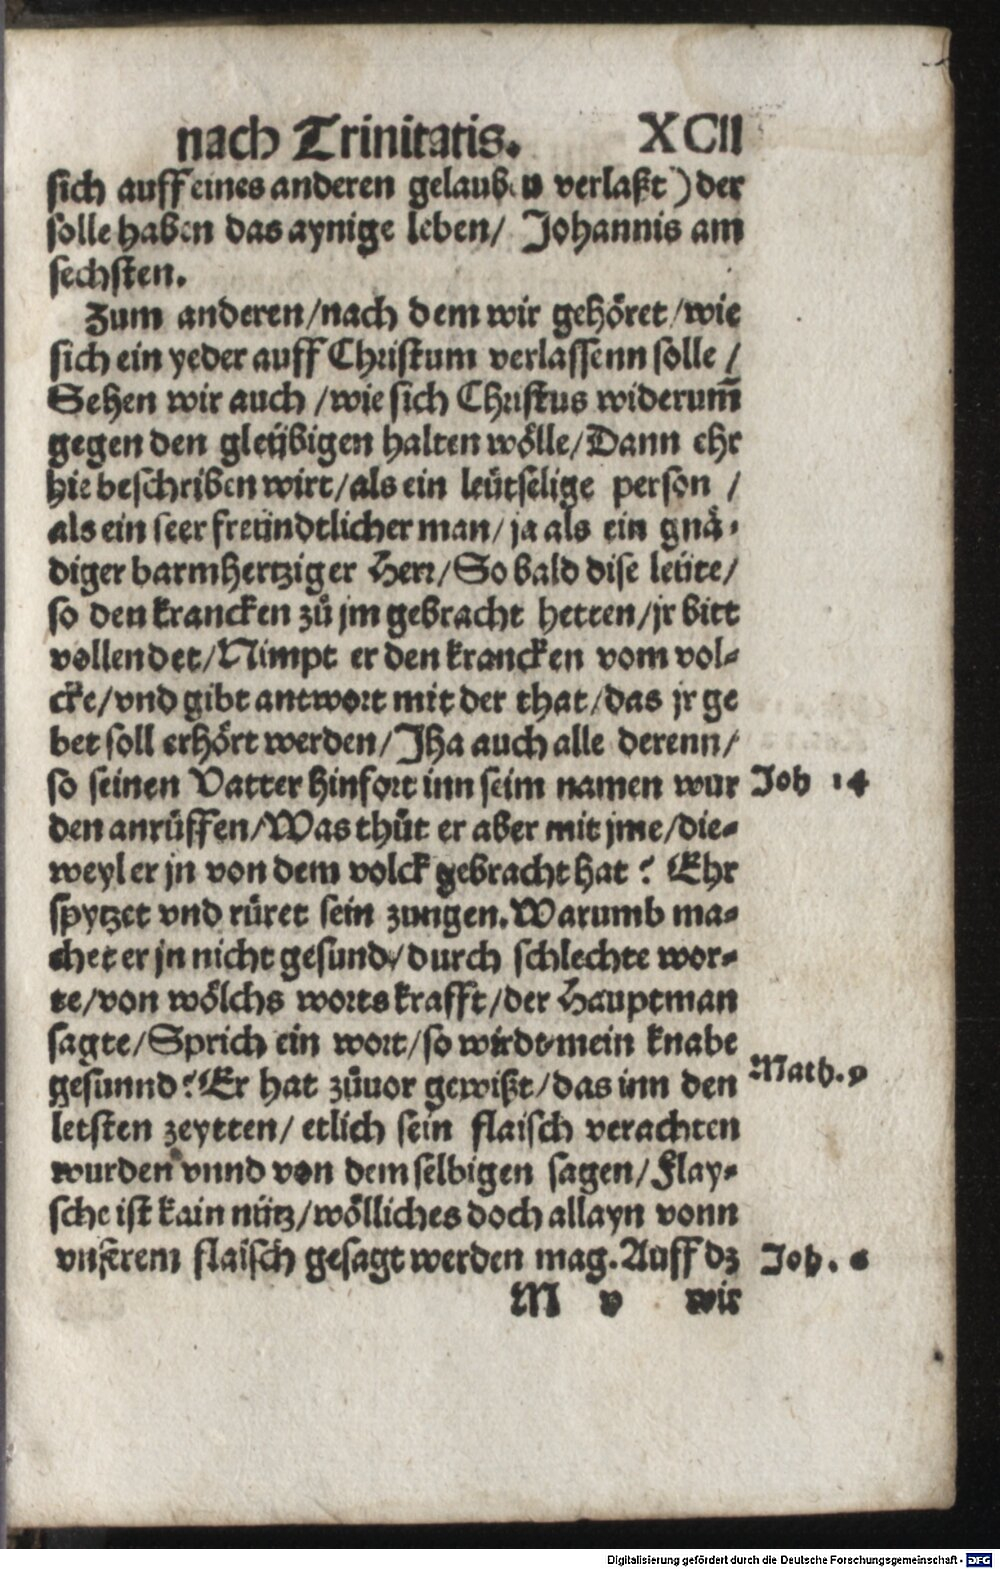 nach Trinitatis. XCII
sich auff eines anderen gelauben verlaßt) der
solle haben das aynige leben/ Johannis am
sechsten.
Zum anderen/nach dem wir gehöret/wie
sich ein yeder auff Christum verlassenn solle/
Sehen wir auch/wie sich Christus widerum̄
gegen den gleübigen halten wölle/Dann ehr
hie beschriben wirt/als ein leütselige person/
als ein seer freündtlicher man/ja als ein gnä-
diger barmhertziger Herr/So bald dise leüte/
so den krancken zů jm gebracht hetten/jr bitt
vollendet/Nimpt er den krancken vom vol-
cke/vnd gibt antwort mit der that/das jr ge
bet soll erhört werden/Jha auch alle derenn/
so seinen Vatter hinfort inn seim namen wur Joh 14
den anrüffen/Was thůt er aber mit jme/die-
weyl er jn von dem volck gebracht hat? Ehr
spytzet vnd rüret sein zungen.Warumb ma-
chet er jn nicht gesund/durch schlechte wor-
te/von wölchs worts krafft/der Hauptman
sagte/Sprich ein wort/so wirdt mein knabe
gesunnd? Er hat zůuor gewißt/das inn den Math.
letsten zeytten/etlich sein flaisch verachten
wurden vnnd von dem selbigen sagen/Flay-
sche ist kain nütz/wölliches doch allayn vonn
vnserem flaisch gesagt werden mag.Auff dz Joh. 6
M v wir
Digitalisierung gefördert durch die Deutsche Forschungsgemeinschaft - DFG